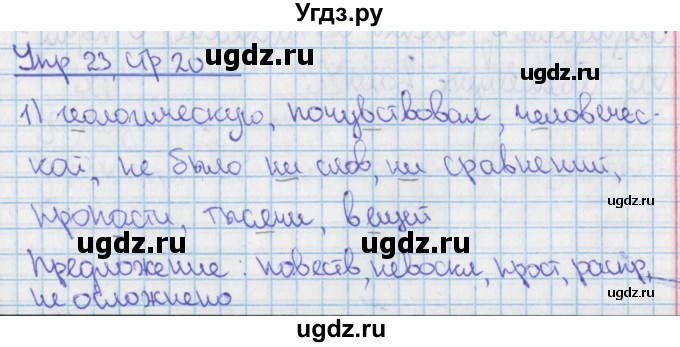 Угдз.ру
Упр 23, стр 20
ugdz.ru ugdz.ru
1) геологическую, почувствовал, человечес-
кой, не было ни слов, ни сравнений,
ugdz.ru ugdz.ru
пропасти, тысячи, вещей
Предложение: повеств, невоскл, прост, распр,
ugdz.ru
не осложнено
ugdz.ru